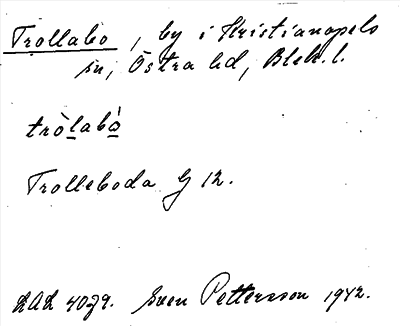 Trollabo, by i Kristianopels
sn, Östra hd, Blek. l.
tròlabó̠
Trolleboda G 12.
LAL 4079. Sven Pettersson 1942.